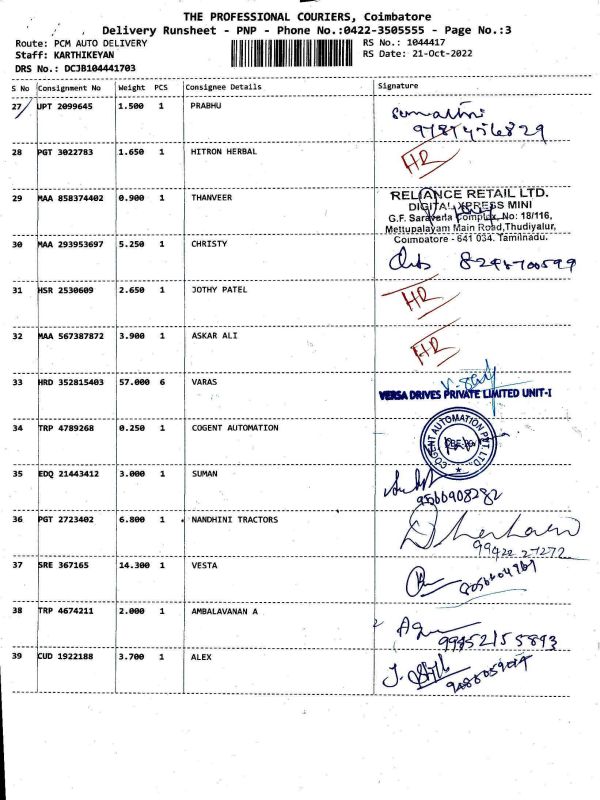 THE PROFESSIONAL COURIERS, Coimbatore
Delivery Runsheet - PNP - Phone No.:0422-3505555 - Page No.:3
Route: PCM AUTO DELIVERY
RS No.: 1044417
Staff: KARTHIKEYAN
RS Date: 21-Oct-2022
DRS No.: DCJB104441703
S No Consignment No Weight PCS Consignee Details Signature
27 UPT 2099645 1.500 1 PRABHU
28 PGT 3022783 1.650 1 HITRON HERBAL HR
29 MAA 858374402 0.900 1 THANVEER
RELIANCE RETAIL LTD.
DIGITAL XPRESS MINI
G.F. Saravana Complex, No: 18/116,
Mettupalayam Main Road, Thudiyalur,
Coimbatore - 641 034. Tamilnadu.
30 MAA 293953697 5.250 1 CHRISTY
31 HSR 2530609 2.650 1 JOTHY PATEL HR
32 MAA 567387872 3.900 1 ASKAR ALI HR
33 HRD 352815403 57.000 6 VARAS
VERSA DRIVES PRIVATE LIMITED UNIT-I
34 TRP 4789268 0.250 1 COGENT AUTOMATION
COGENT AUTOMATION PVT. LTD.
35 EDQ 21443412 3.000 1 SUMAN
9566908282
36 PGT 2723402 6.800 1 NANDHINI TRACTORS
99422 27272
37 SRE 367165 14.300 1 VESTA
38 TRP 4674211 2.000 1 AMBALAVANAN A
9945215 5893
39 CUD 1922188 3.700 1 ALEX